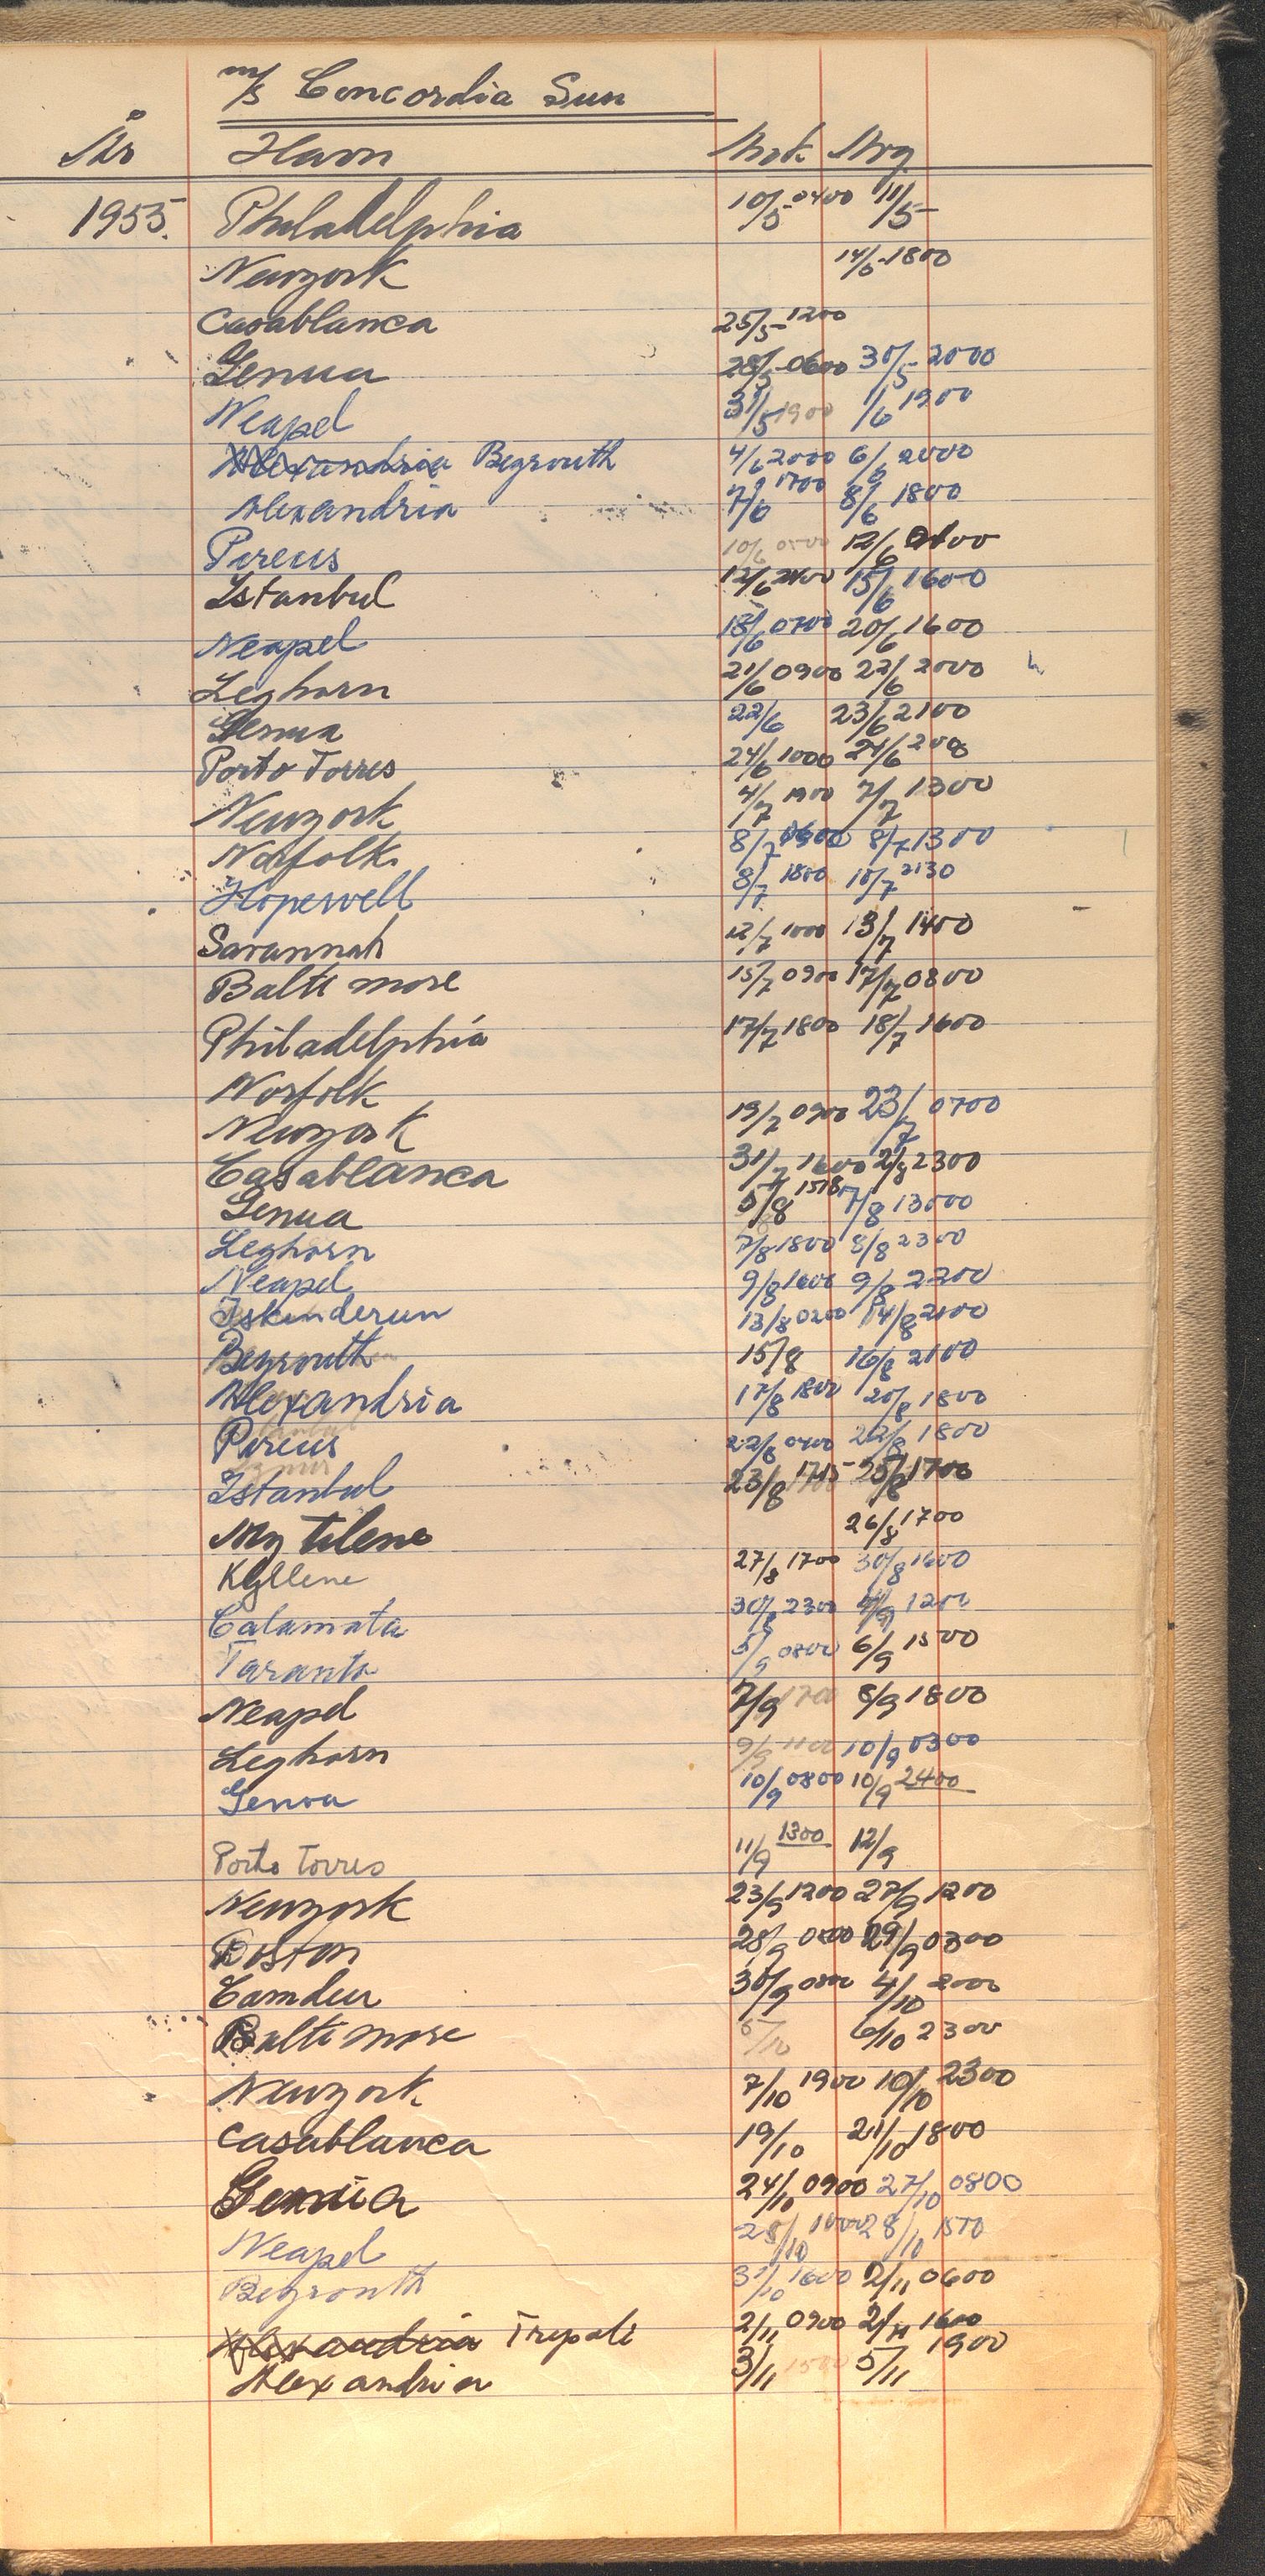 m/s Concordia Sun
År Havn Ank Avg
1955. Philadelphia 10/5 0400 11/5
Newyork 14/5 1800
Casablanca 25/5 1200
Genua 28/5 0600 30/5 2000
Neapel 31/5 1900 1/6 1900
Alexandria Beyrouth 4/6 2000 6/6 2000
Alexandria 7/6 1700 8/6 1800
Pireus 10/6 0500 12/6 0100
Istanbul 12/6 2400 15/6 1600
Neapel 18/6 0700 20/6 1600
Leghorn 21/6 0900 22/6 2000
Genua 22/6 23/6 2100
Porto Torres 24/6 1000 24/6 2000
Newyork 4/7 1900 7/7 1300
Norfolk 8/7 8/7 1300
Hopewell 8/7 1800 10/7 2130
Savannah 12/7 1000 13/7 1400
Balti more 15/7 0900 17/7 0800
Philadelphia 17/7 1800 18/7 1600
Norfolk
Newyork 19/7 0900 23/7 0700
Casablanca 31/7 1600 2/8 2300
Genua 5/8 1518 7/8 13000
Leghorn 7/8 1800 8/8 2300
Neapel 9/8 1600 9/8 2200
Iskenderun 13/8 0200 14/8 2100
Beyrouth 15/8 16/8 2100
Alexandria 17/8 1800 20/8 1800
Pireus 22/8 0400 22/8 1800
Istanbul 23/8 1715 25/8 1700
My tilene 26/8 1700
Kyllene 27/8 1700 30/8 1600
Calamata 30/8 2300 1200
Taranto 5/9 0800 6/9 1500
Neapel 7/9 1700 8/9 1800
Leghorn 9/9 1100 10/9 0300
Genoa 10/9 0800 10/9 2400
Porto Torres 11/9 1300 12/9
Newyork 23/9 1200 27/9 1200
Boston 28/9 0800 29/9 0300
Camden 30/9 0800 4/10 2000
Balti more 5/10 6/10 2300
Newyork 7/10 1900 10/10 2300
Casablanca 19/10 21/10 1800
Genua 24/10 0900 27/10 0800
Neapel 28/10 28/10 1500
Beyrouth 31/10 1600 2/11 0600
Alexandria Tripoli 2/11 0900 2/11 1600
Alexandria 3/11 1500 5/11 1900